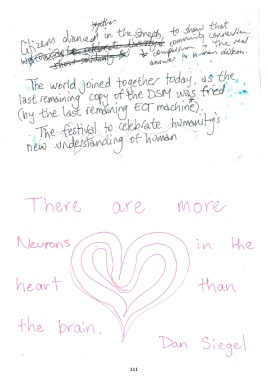 together
Citizens danced in the streets, to show that
community connection
compassion is the real
answer to human distress.
The world joined together today, as the
last remaining copy of the DSM was fried
(by the last remaining ECT machine).
The festival to celebrate humanity's
new understanding of human
There are more
Neurons in the
heart than
the brain.
Dan Siegel
111